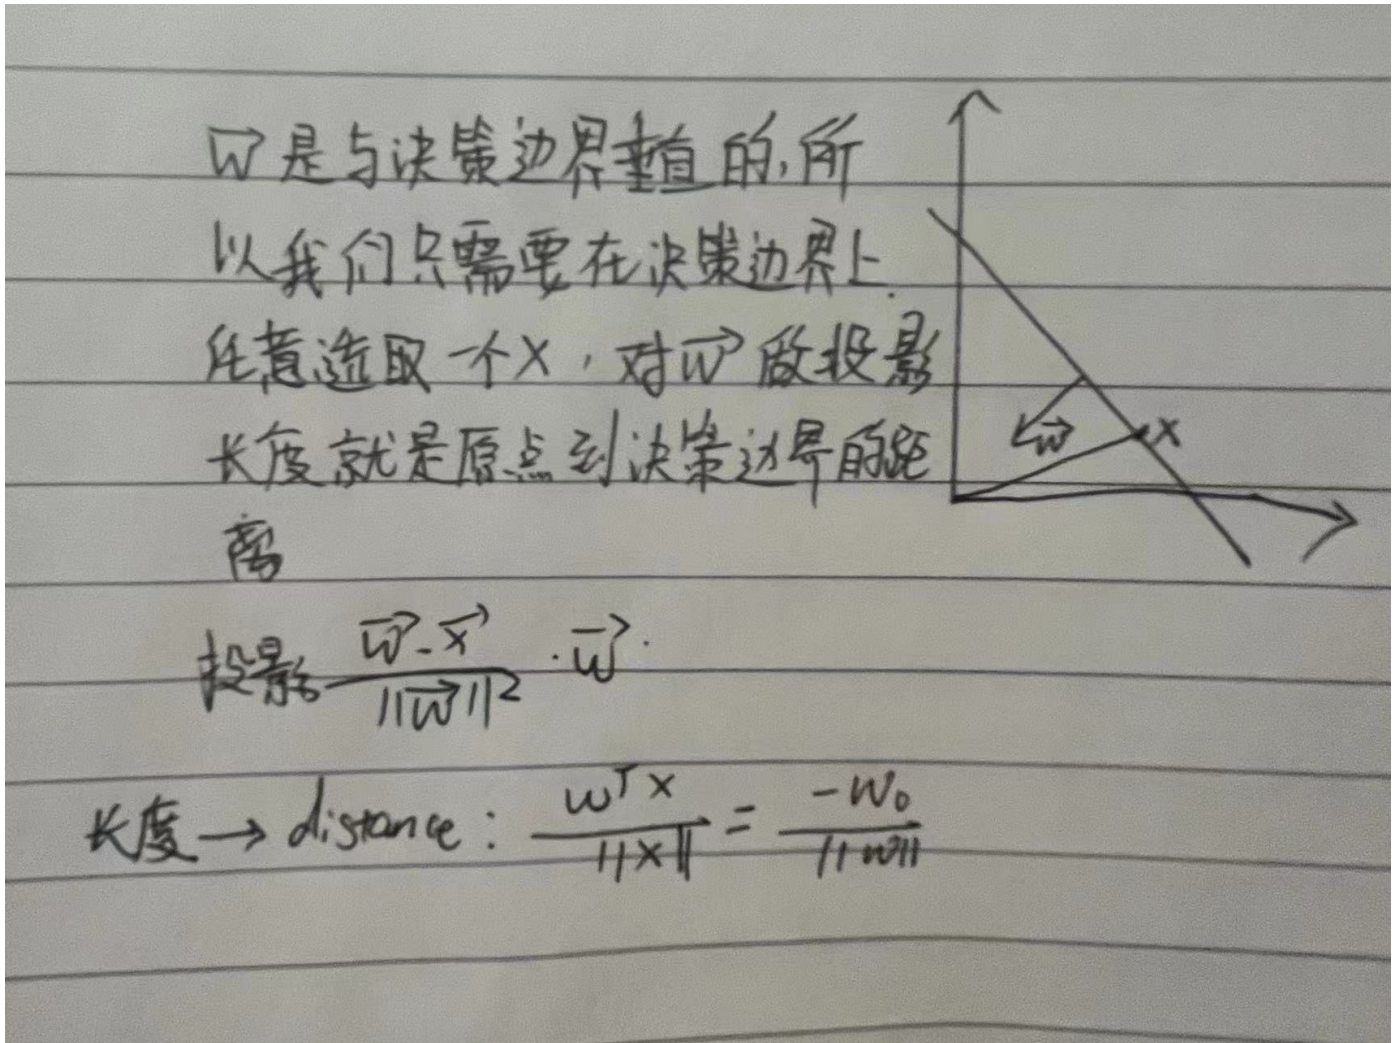 w⃗ 是与决策边界垂直的,所
以我们只需要在决策边界上.
任意选取一个X,对w⃗ 做投影
长度就是原点到决策边界的距
离
w⃗
X
投影 (w⃗ · x⃗) / ||w⃗||² · w⃗
长度 → distance: wᵀx / ||x|| = -w₀ / ||w||